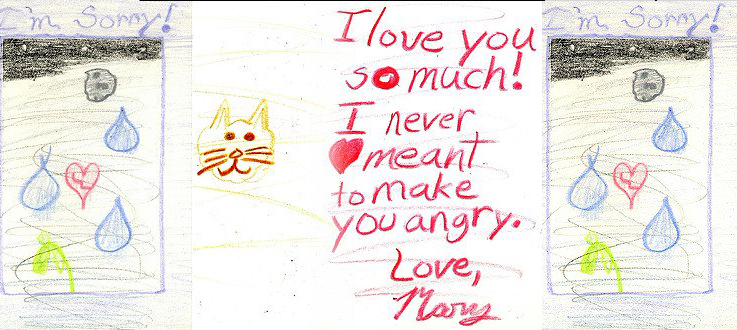 I'm Sorry!
I love you
so much!
I never
meant
to make
you angry.
Love,
Mary
I'm Sorry!